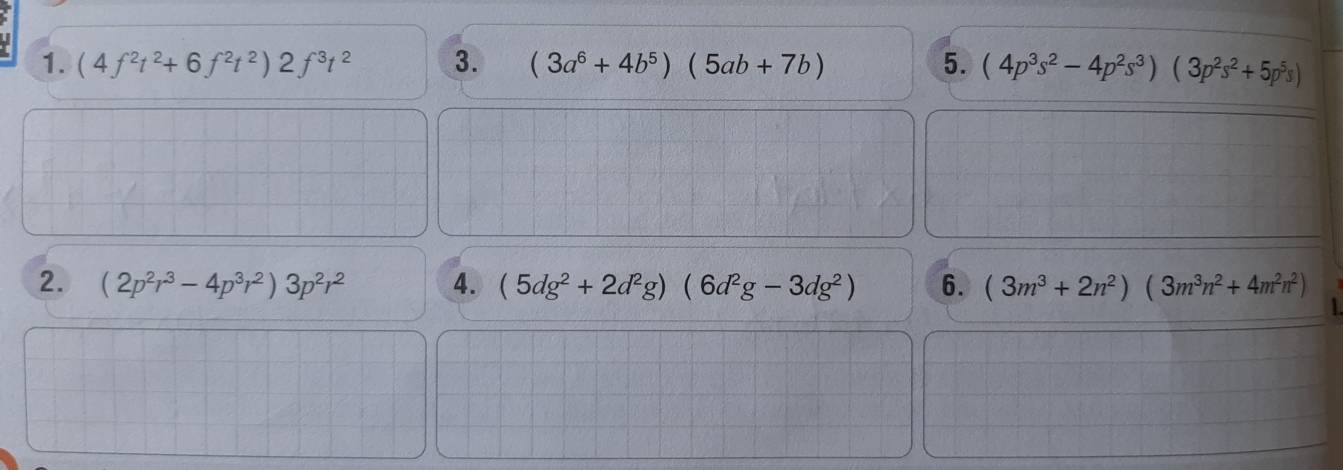 1. ( 4 f²t ²+ 6 f²t ² ) 2 f³t ²
3. ( 3a⁶ + 4b⁵ ) ( 5ab + 7b )
5. ( 4p³s² − 4p²s³ ) ( 3p²s² + 5p⁵s )
2. ( 2p²r³ − 4p³r² ) 3p²r²
4. ( 5dg² + 2d²g ) ( 6d²g − 3dg² )
6. ( 3m³ + 2n² ) ( 3m³n² + 4m²n² )